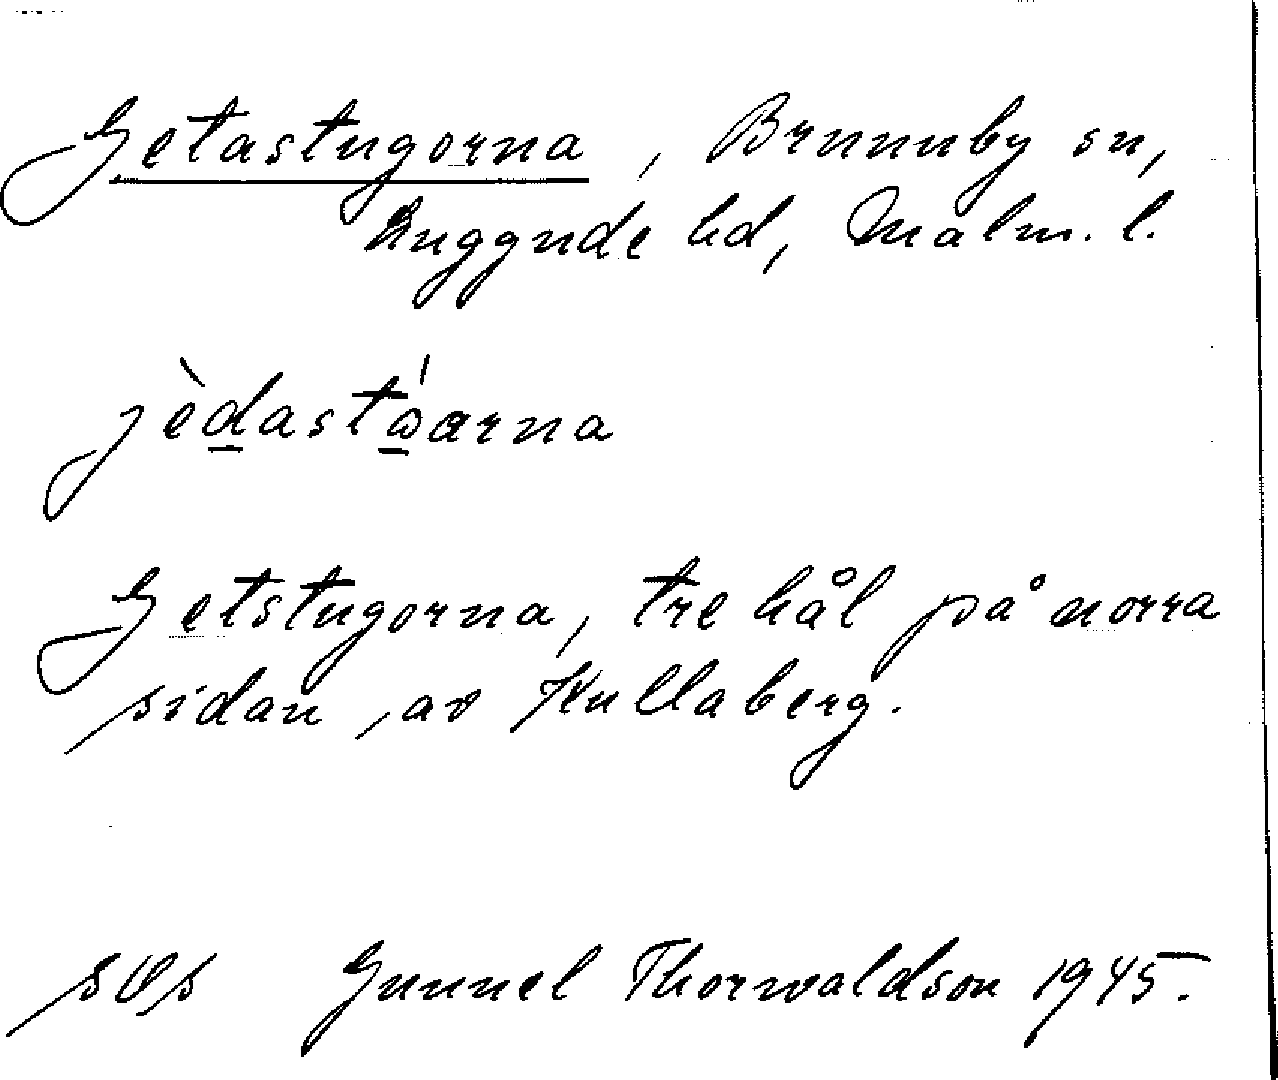 Getastugorna, Brunnby sn,
Luggude hd, Malm. l.
jèdastẃarna
Getstugorna, tre hål på norra
sidan av Kullaberg.
Gunnel Thorwaldson 1945.